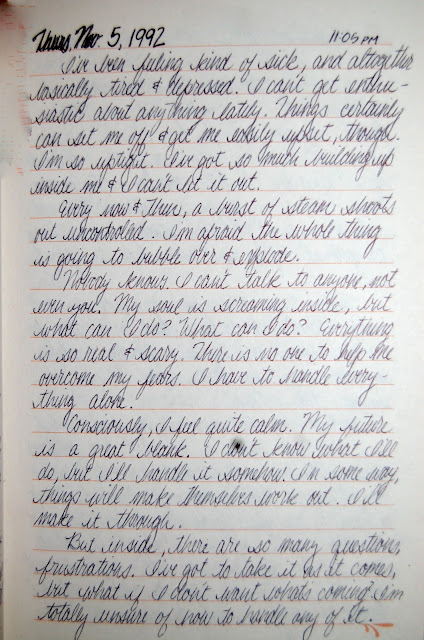 Thurs, Nov. 5, 1992 11:05 PM
I've been feeling kind of sick, and altogether
basically tired & depressed. I can't get enthu-
siastic about anything lately. Things certainly
can set me off & get me easily upset, though.
I'm so uptight. I've got so much building up
inside me & I can't let it out.
Every now & then, a burst of steam shoots
out uncontroled. I'm afraid the whole thing
is going to bubble over & explode.
Nobody knows. I can't talk to anyone, not
even you. My soul is screaming inside, but
what can I do? What can I do? Everything
is so real & scary. There is no one to help me
overcome my fears. I have to handle every-
thing alone.
Consciously, I feel quite calm. My future
is a great blank. I don't know what I'll
do, but I'll handle it somehow. In some way,
things will make themselves work out. I'll
make it through.
But inside, there are so many questions,
frustrations. I've got to take it as it comes,
but what if I don't want what's coming. I'm
totally unsure of how to handle any of it.